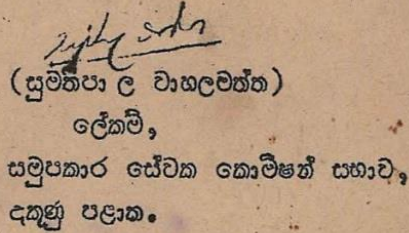 (සුමතිපා ල වාහලමත්ත)
ලේකම්,
සමුපකාර සේවක කොමිෂන් සභාව,
දකුණු පළාත.